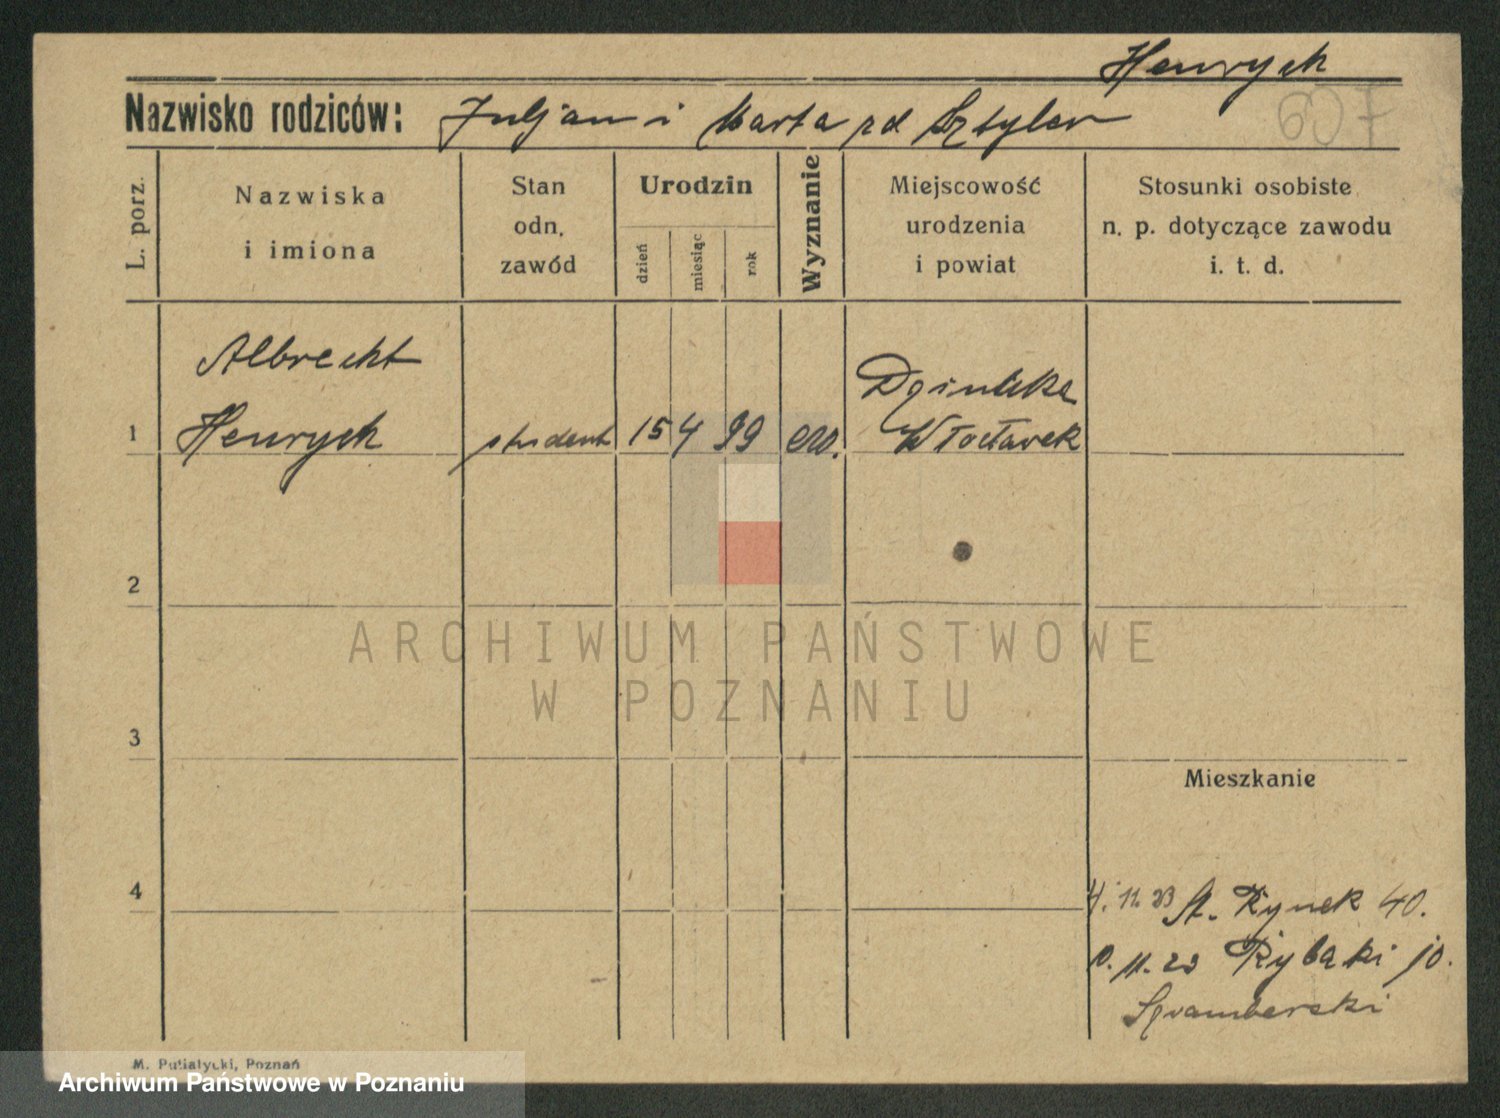 Henryck
Nazwisko rodziców: Juljan i Marta zd Sztyler
607
L. porz.
Nazwiska
i imiona
Stan
odn.
zawód
Urodzin
dzień
miesiąc
rok
Wyznanie
Miejscowość
urodzenia
i powiat
Stosunki osobiste
n. p. dotyczące zawodu
i. t. d.
Albrecht
1 Henryck student 15 4 99 ew. Włocławek
2
ARCHIWUM PAŃSTWOWE
W POZNANIU
3
Mieszkanie
4
4. 11. 23 St. Rynek 40.
11. 23 Rybaki 10.
M. Putiatycki, Poznań
Archiwum Państwowe w Poznaniu